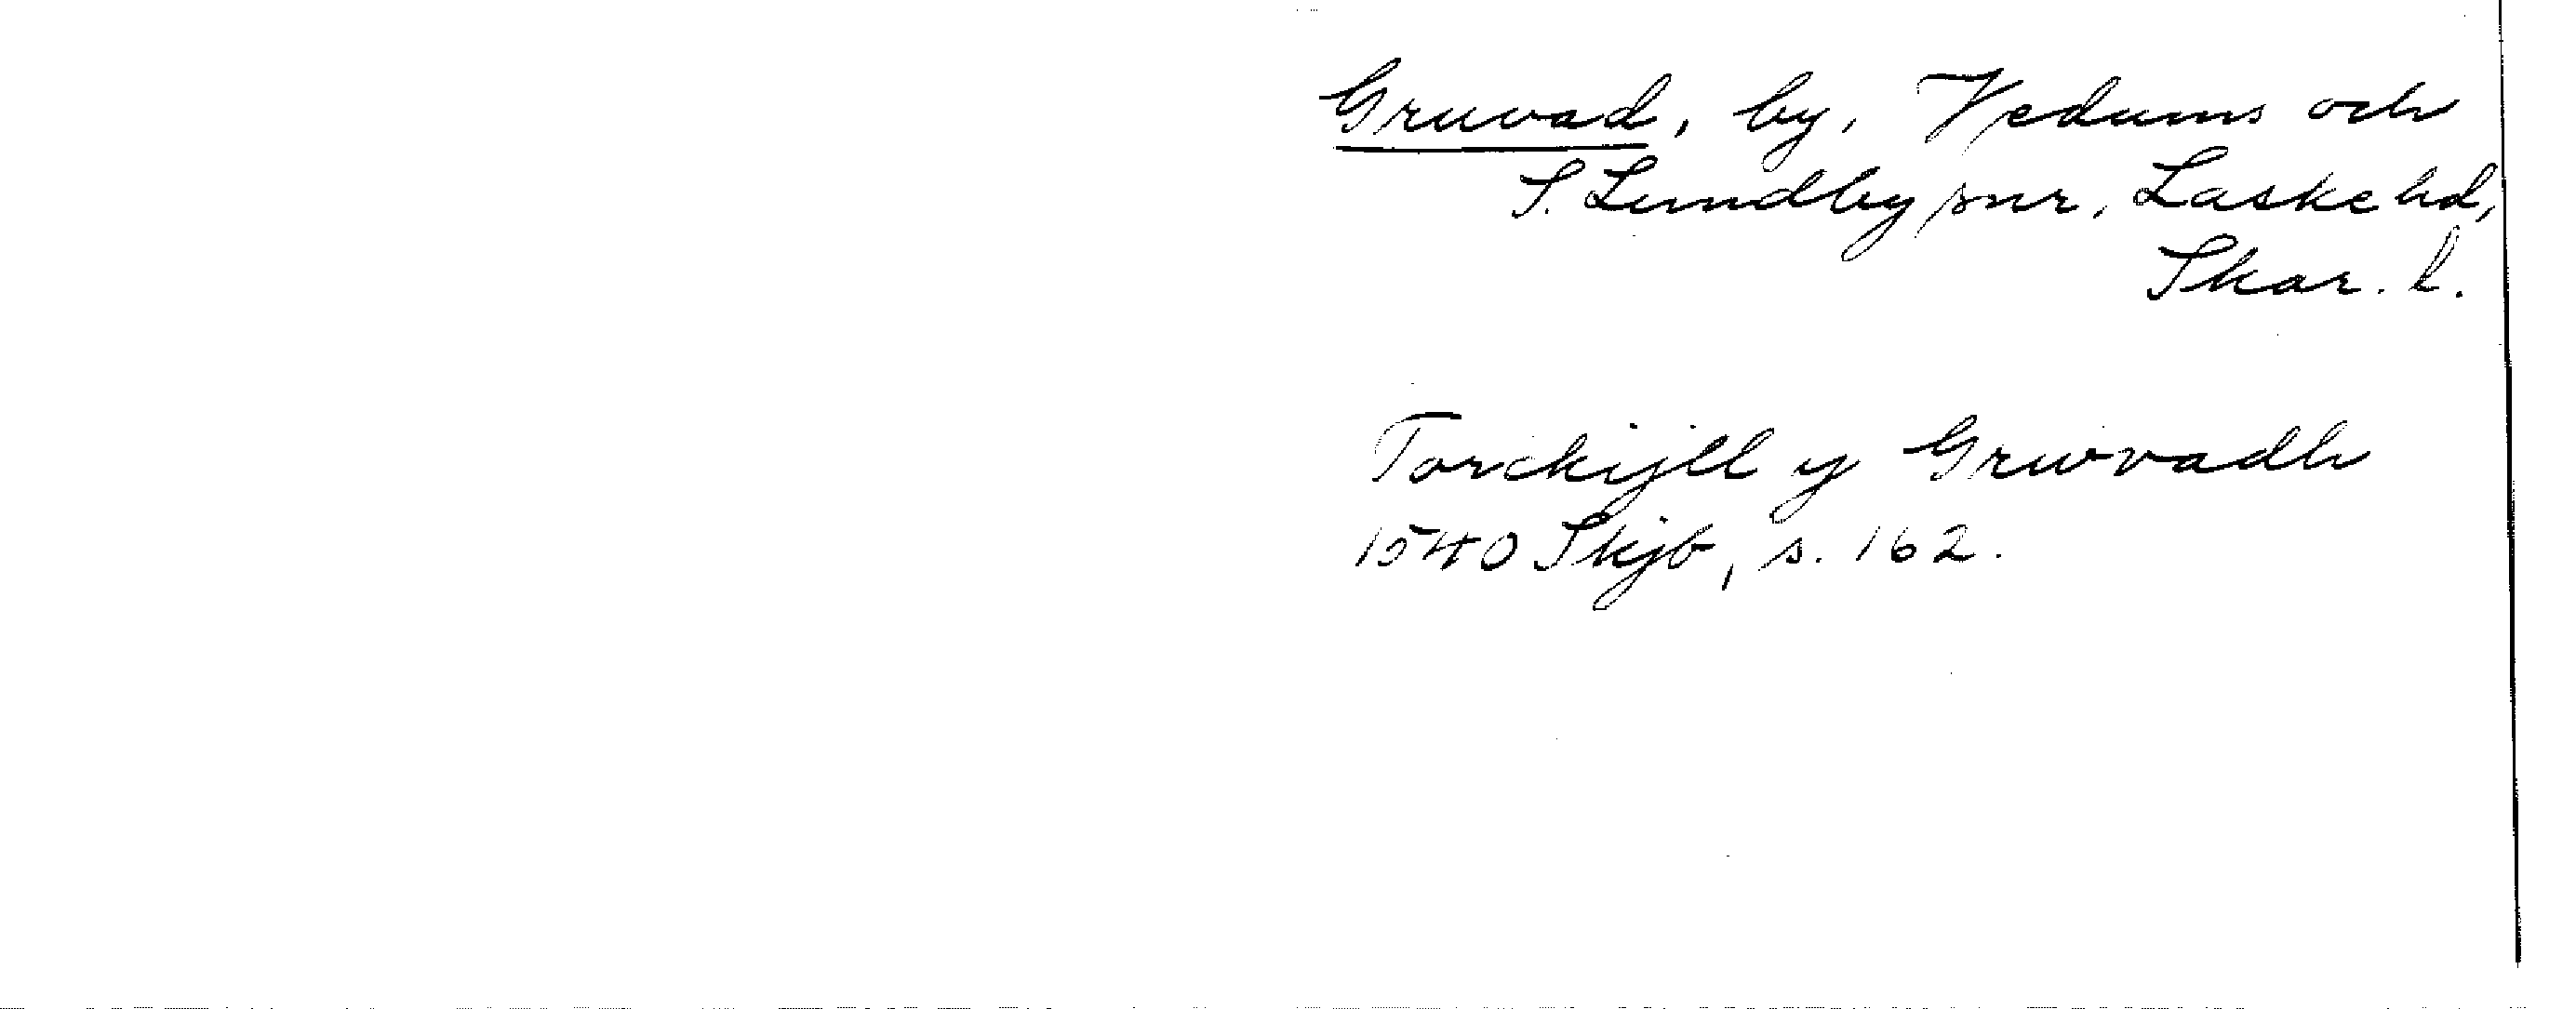 Gruvad, by, Vedums och
S. Lundby snr, Laske hd,
Skar. l.
Torckijll y Grwvadh
1540 Skjb, s. 162.